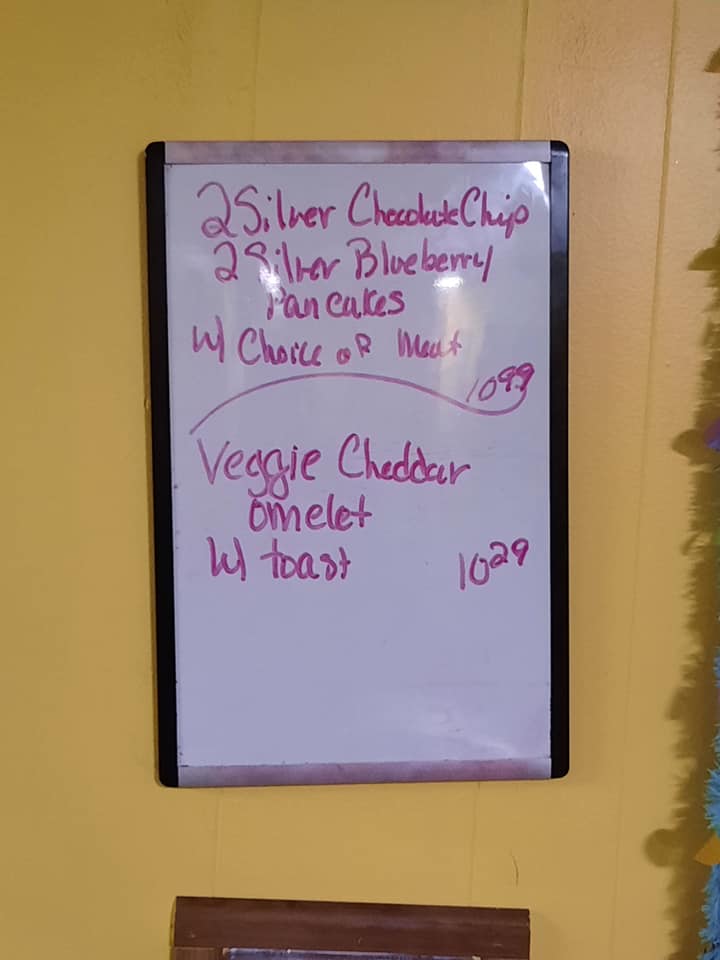 2 Silver Chocolate Chip
2 Silver Blueberry
Pancakes
W/ Choice of Meat
10 99
Veggie Cheddar
omelet
W/ toast 10 29